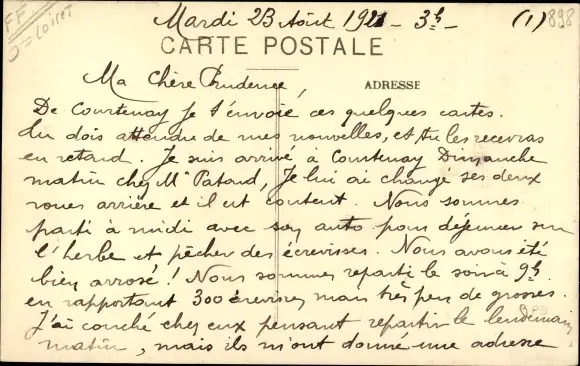 Mardi 23 Août 1921 - 3h - (1) 898
FF
Loiret
CARTE POSTALE
Ma chère Prudence,
ADRESSE
De Courtenay je t'envoie ces quelques cartes.
Tu dois attendre de mes nouvelles, et tu les recevras
en retard. Je suis arrivé à Courtenay Dimanche
matin chez Mr Pataud, Je lui ai changé ses deux
roues arrière et il est content. Nous sommes
parti à midi avec son auto pour déjeuner sur
l'herbe et pêcher des écrevisses. Nous avons été
bien arrosé! Nous sommes reparti le soir à 9h
en rapportant 300 écrevisses mais très peu de grosses.
J'ai couché chez eux pensant repartir le lendemain
matin, mais ils m'ont donné une adresse